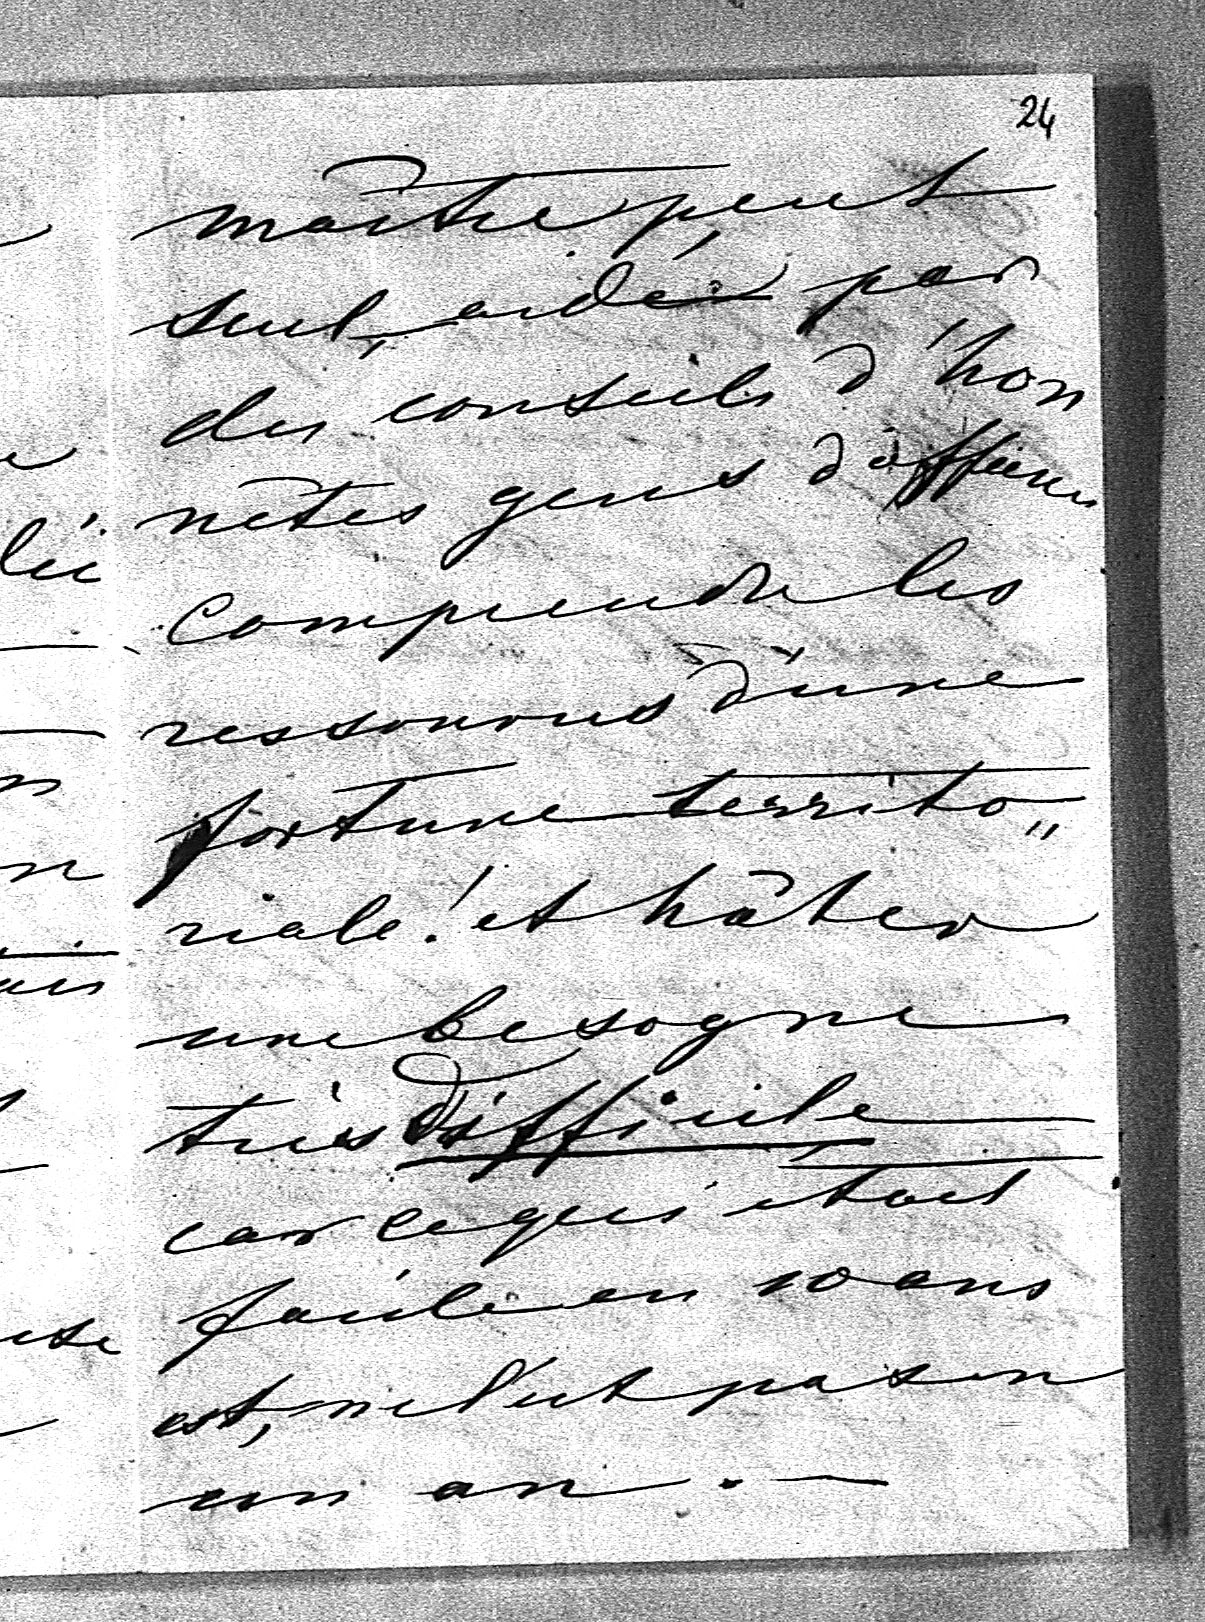 24
maître peut
seul, aidé par
des conseils d'hon
nêtes gens d'affaires
comprendre les
ressources d'une
fortune territo„
riale! et hâter
une besogne
très difficile
car ce qui était
facile en 10 ans
est, ne l'est pas en
un an. —